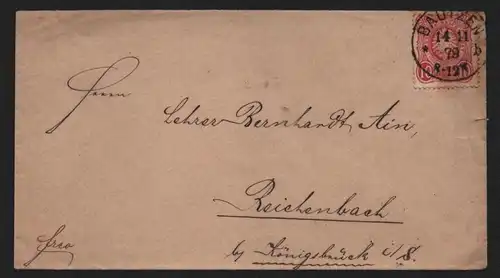 BAUTZEN
14 11
79
* b
8-12N
10
Herrn
Lehrer Bernhardt Ain,
Reichenbach
b/ Königsbrück i/S.
frco